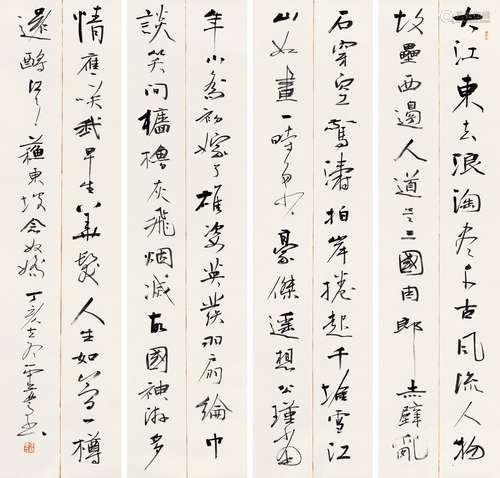 大江東去浪淘盡千古風流人物
故壘西邊人道是三國周郎赤壁亂
石穿空驚濤拍岸捲起千堆雪江
山如畫一時多少豪傑遙想公瑾當
年小喬初嫁了雄姿英發羽扇綸巾
談笑間檣櫓灰飛烟滅故國神游多
情應笑我早生華髮人生如夢一樽
還酹江月蘇東坡念奴嬌丁亥